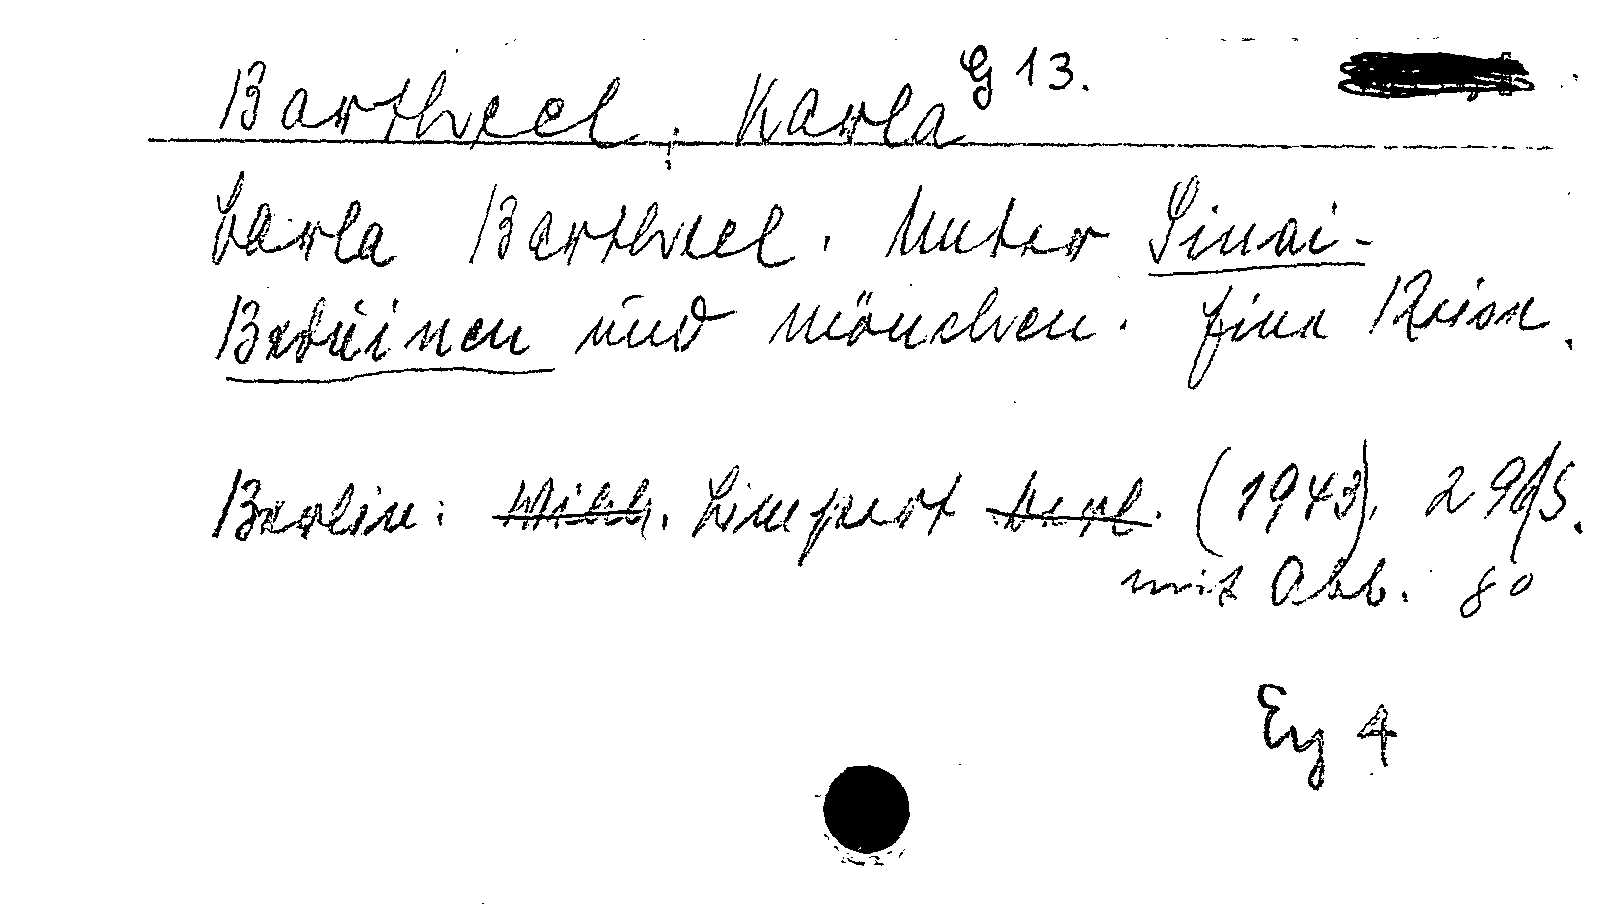 Bartheel, Karla G 13.
Carla Bartheel. Unter Sinai-
Beduinen und Mönchen. Eine Reise.
Berlin: Wilh. Limpert Verl. (1943). 29 S.
mit Abb. 8°
Ey 4